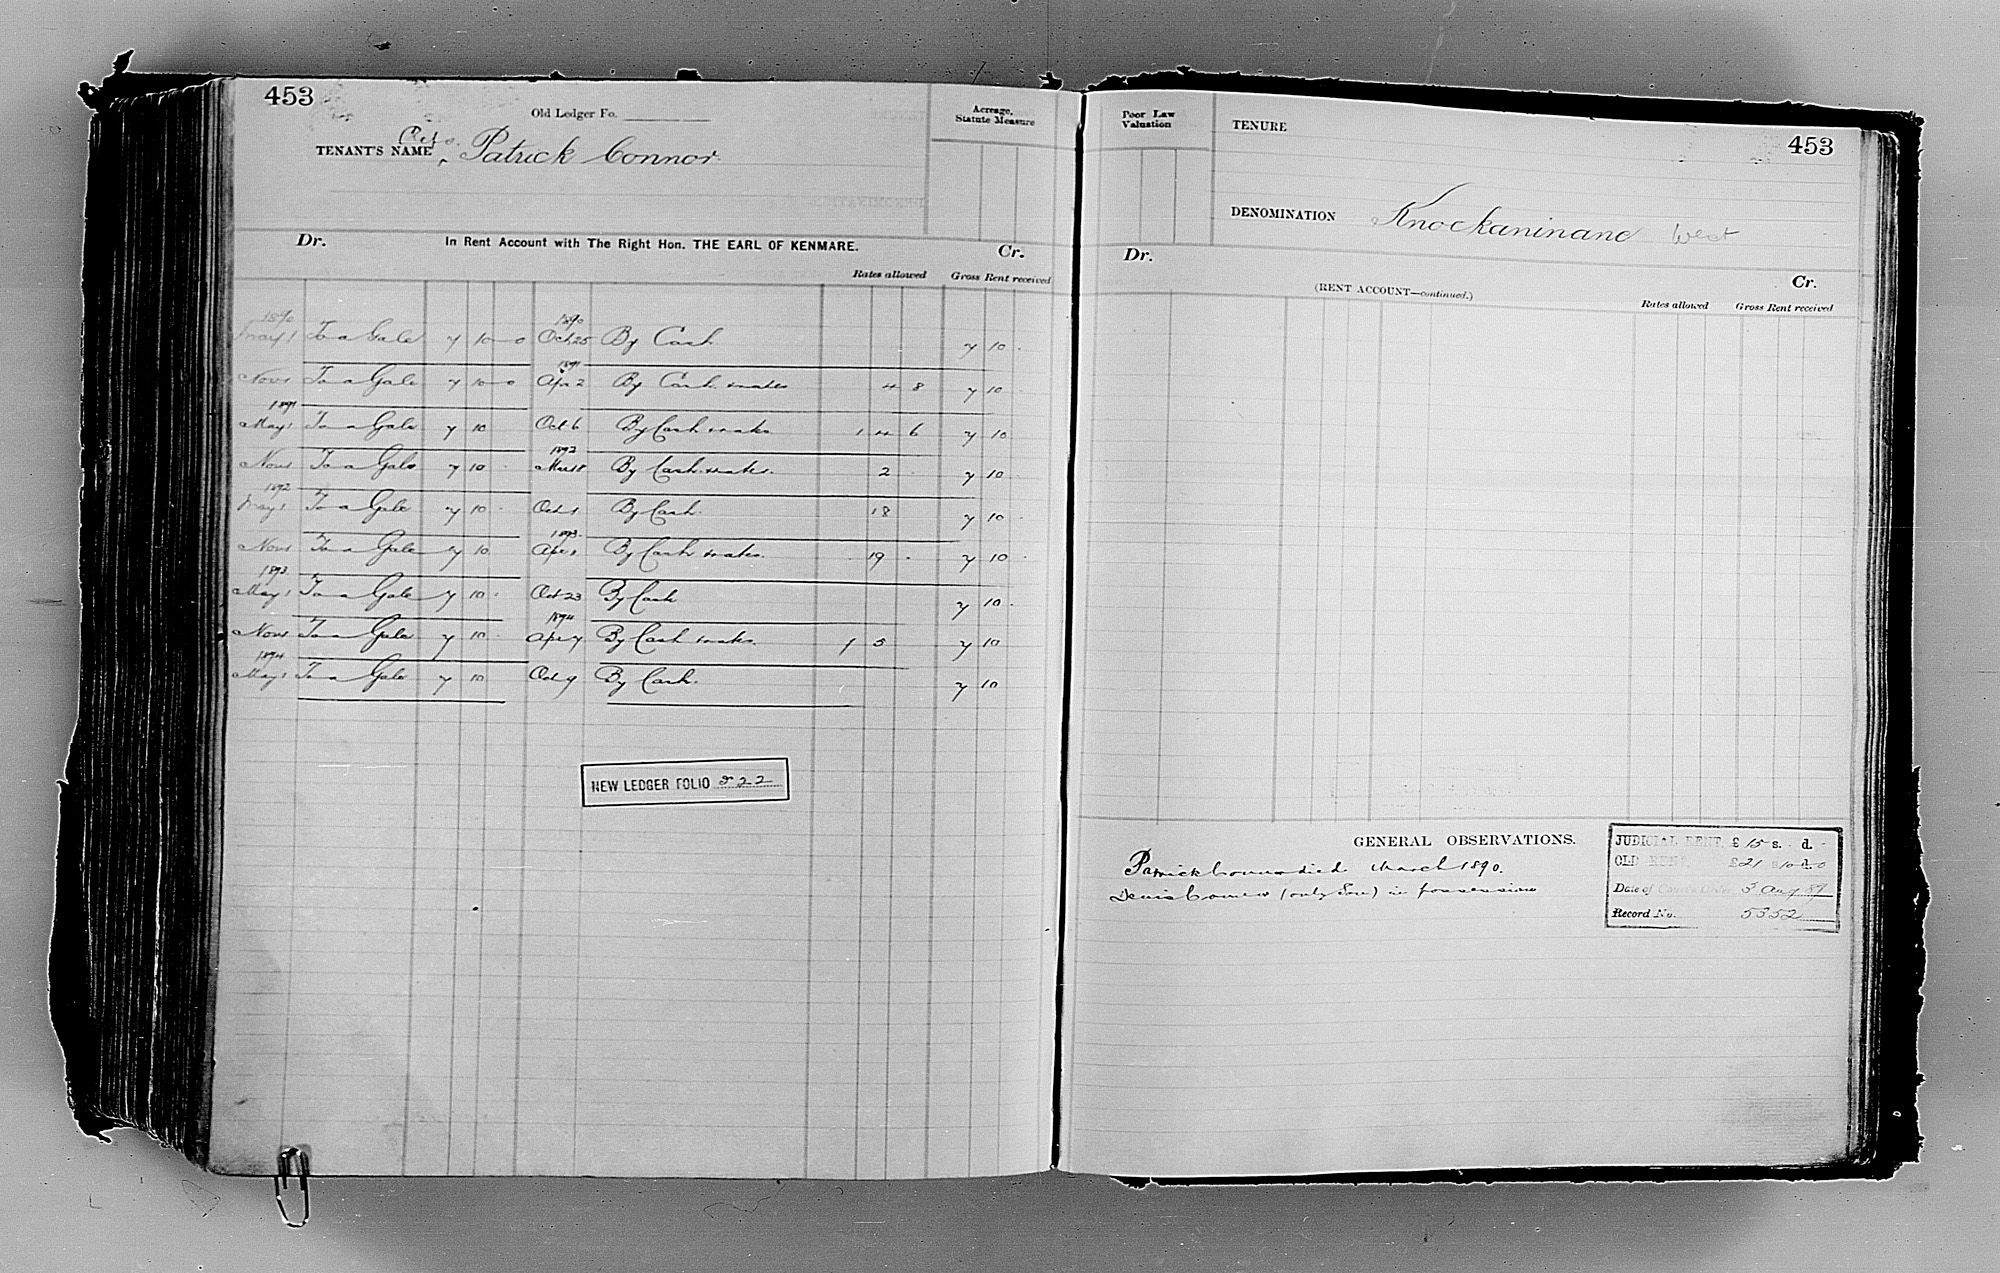 453
Old Ledger Fo.
TENANT'S NAME Reps. Patrick Connor
Acreage, Statute Measure
Dr. In Rent Account with The Right Hon. THE EARL OF KENMARE. Cr.
Rates allowed Gross Rent received
1890 1890
May 1 To a Gale 7 10 0 Oct 25 By Cash 7 10 -
1891
Nov 1 To a Gale 7 10 0 Apr 2 By Cash & rates 4 8 7 10 -
1891
May 1 To a Gale 7 10 Oct 6 By Cash & rates 1 4 6 7 10
1892
Nov 1 To a Gale 7 10 - Mar 18 By Cash & rates 2 - 7 10 -
1892
May 1 To a Gale 7 10 - Oct 1 By Cash 18 7 10 -
1893
Nov 1 To a Gale 7 10 Apr 1 By Cash & rates 19 - 7 10 -
1893
May 1 To a Gale 7 10 - Oct 23 By Cash 7 10 -
1894
Nov 1 To a Gale 7 10 - Apr 7 By Cash & rates 1 5 7 10
1894
May 1 To a Gale 7 10 Oct 9 By Cash 7 10
NEW LEDGER FOLIO 322
Poor Law Valuation
TENURE
453
DENOMINATION Knockaninane West
Dr. Cr.
(RENT ACCOUNT—continued.)
Rates allowed Gross Rent received
GENERAL OBSERVATIONS.
Patrick Connor died March 1890.
Denis Connor (only Son) in possession
JUDICIAL RENT, £ 15 s. - d. -
OLD RENT, £21 s10 d.0
Date of Court's Order 3 Aug 89
Record No. 5352